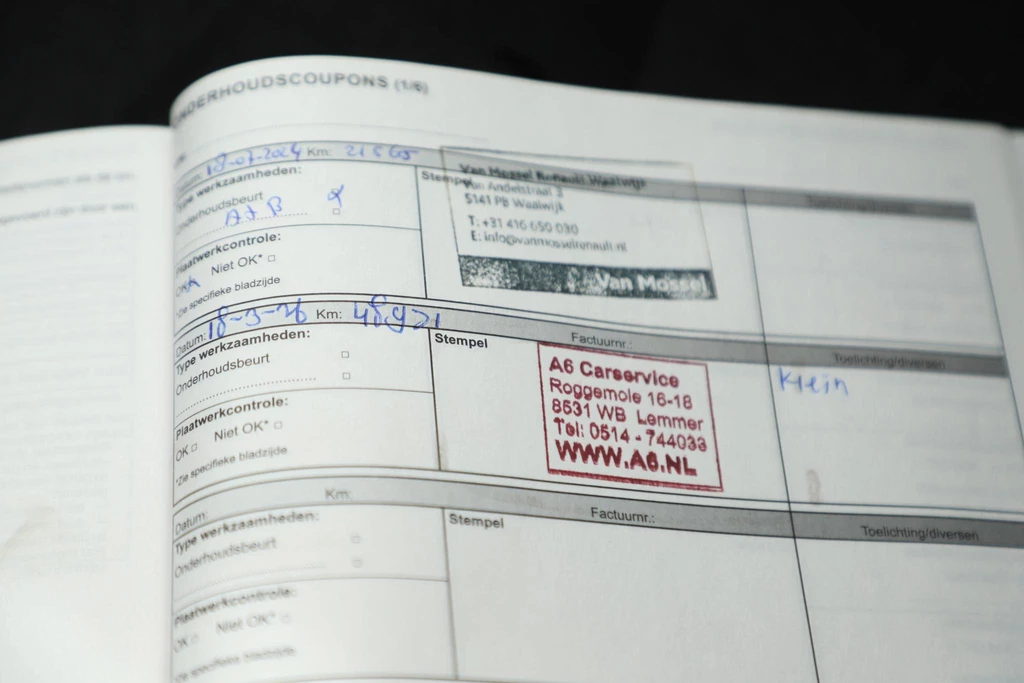 ONDERHOUDSCOUPONS (1/6)
Datum: 18-07-2024 Km: 21565
Type werkzaamheden:
Onderhoudsbeurt
A + B
Plaatwerkcontrole:
OK Niet OK*
*Zie specifieke bladzijde
Stempel
Van Mossel Renault Waalwijk
Van Andelstraat 3
5141 PB Waalwijk
T: +31 416 650 030
E: info@vanmosselrenault.nl
Van Mossel
Toelichting/diversen
Datum: 18-3-26 Km:
Type werkzaamheden:
Onderhoudsbeurt
Plaatwerkcontrole:
OK Niet OK*
*Zie specifieke bladzijde
Stempel
Factuurnr.:
A6 Carservice
Roggemole 16-18
8531 WB Lemmer
Tel: 0514 - 744033
WWW.A6.NL
Toelichting/diversen
Klein
Datum: Km:
Type werkzaamheden:
Onderhoudsbeurt
Plaatwerkcontrole:
OK Niet OK*
*Zie specifieke bladzijde
Stempel
Factuurnr.:
Toelichting/diversen